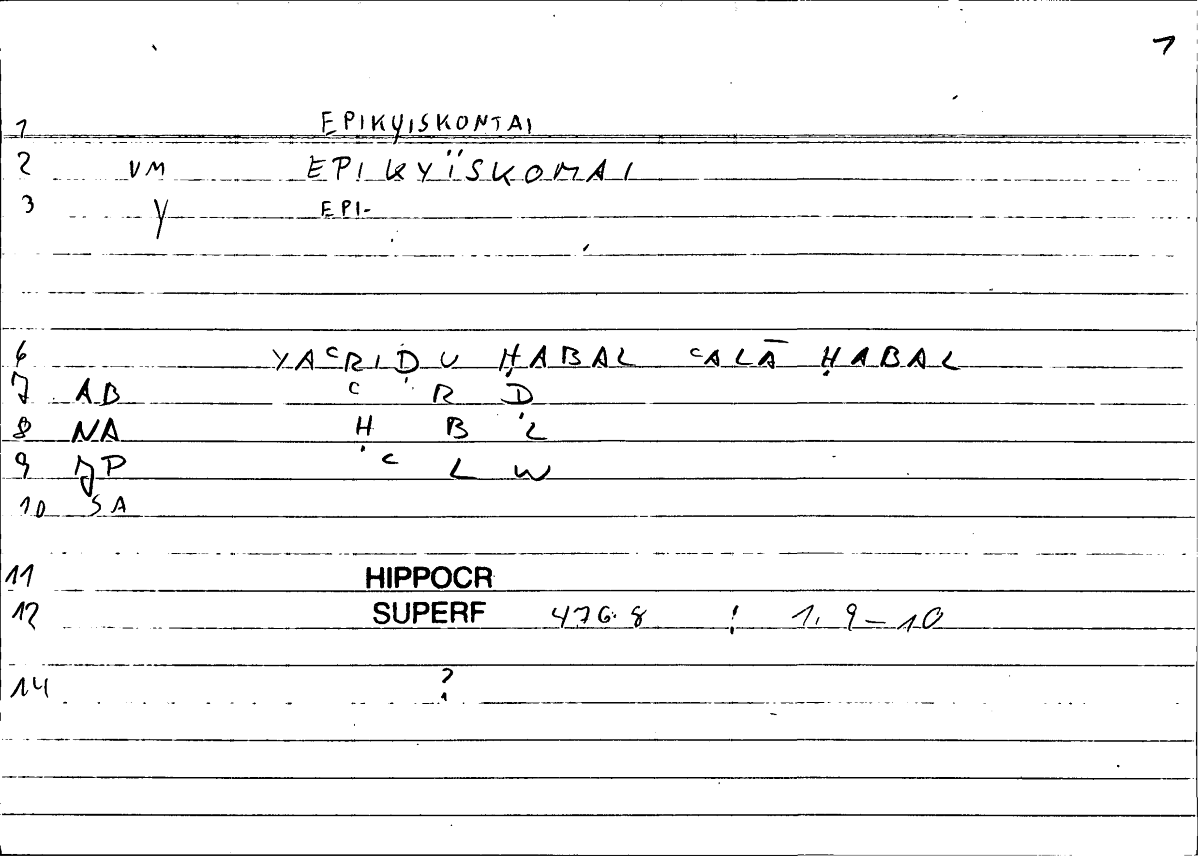 1
1 EPIKYISKONTAI
2 VM EPIKYÏSKOMAI
3 Y EPI-
6 YAᶜRIḌU ḤABAL ᶜALĀ ḤABAL
7 AB ᶜ R Ḍ
8 NA Ḥ B L
9 JP ᶜ L W
10 SA
11 HIPPOCR
12 SUPERF 476.8 ; 1, 9-10
14 ?